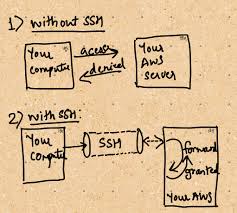 1) without SSH
Your
computer
access
denied
Your
AWS
server
2) with SSH:
Your
Computer
SSH
forward
granted
Your AWS